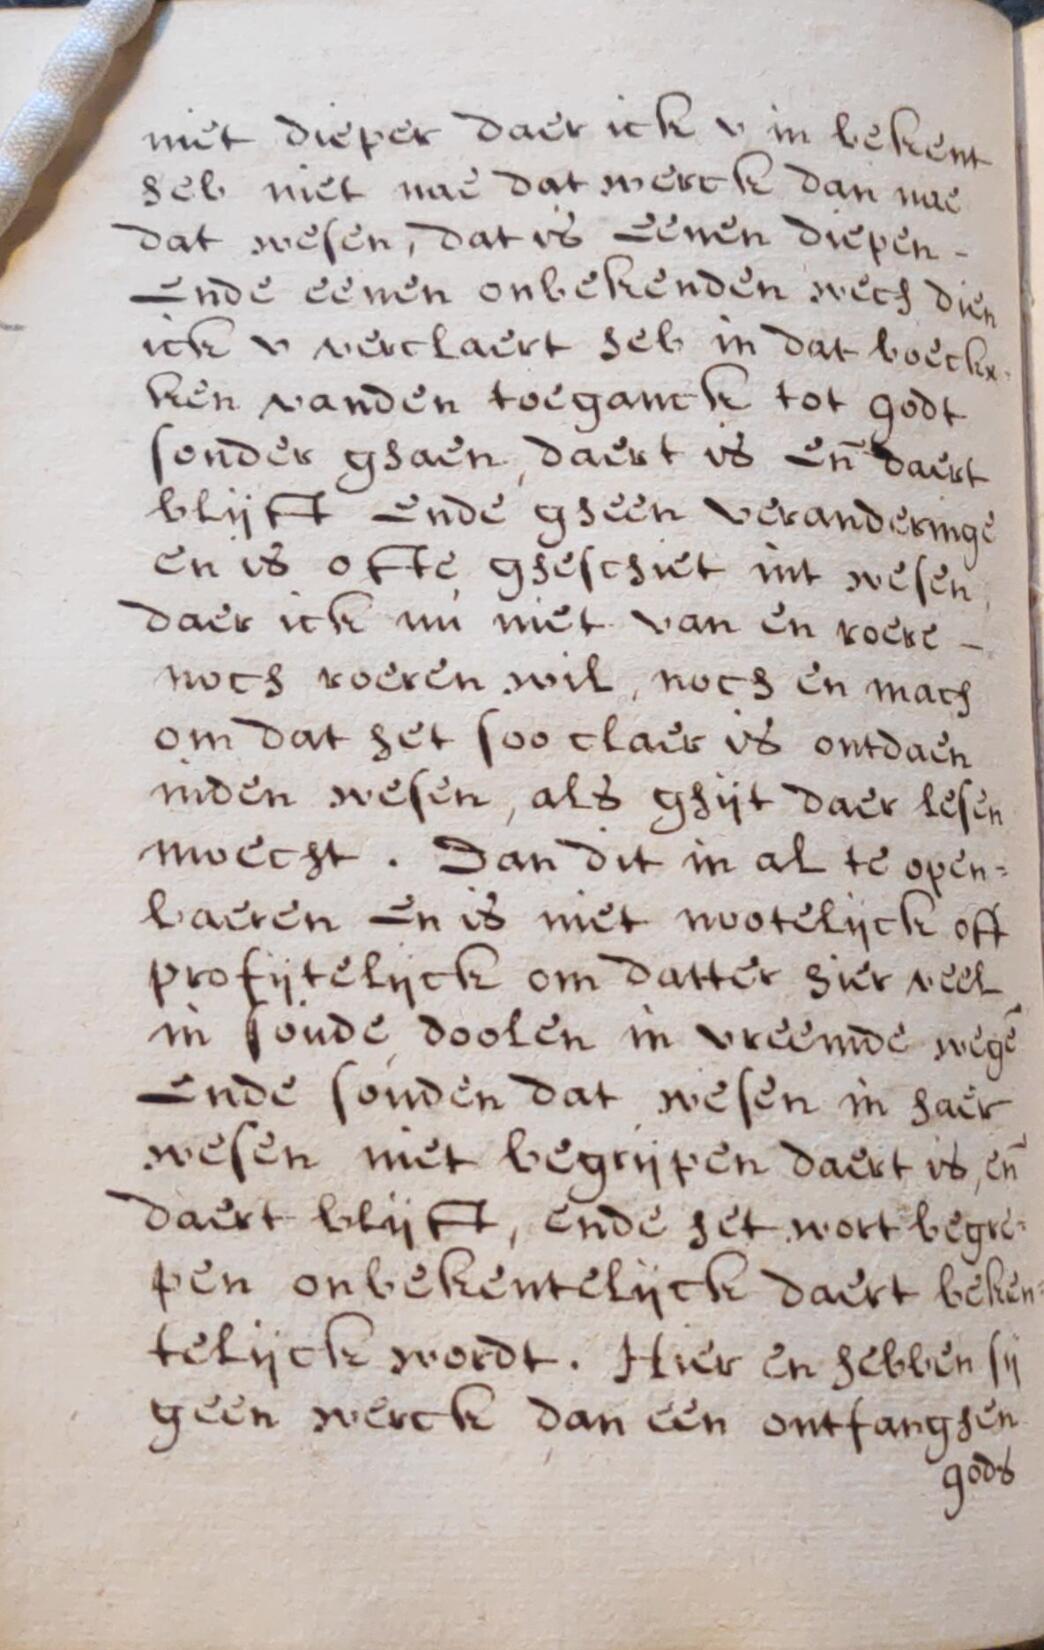 niet dieper daer ick v in bekent
heb niet nae dat werck dan nae
dat wesen, dat is Eenen diepen -
Ende eenen onbekenden wech dien
ick v verclaert heb in dat boeckx-
ken vanden toeganck tot godt
sonder ghaen, daert is En̄ daert
blijft Ende gheen veranderinge
en is ofte gheschiet int wesen,
daer ick nu niet van en roere -
noch roeren wil, noch en mach
om dat het soo claer is ontdaen
inden wesen, als ghijt daer lesen
moecht. Dan dit in al te open=
baeren En is niet nootelijck off
profijtelijck om datter hier veel
in soude doolen in vreemde wegē
Ende souden dat wesen in haer
wesen niet begrijpen daert is, en̄
daert blijft, ende het wort begre=
pen onbekentelijck daert beken=
telijck wordt. Hier en hebben sij
geen werck dan een ontfanghen
gods